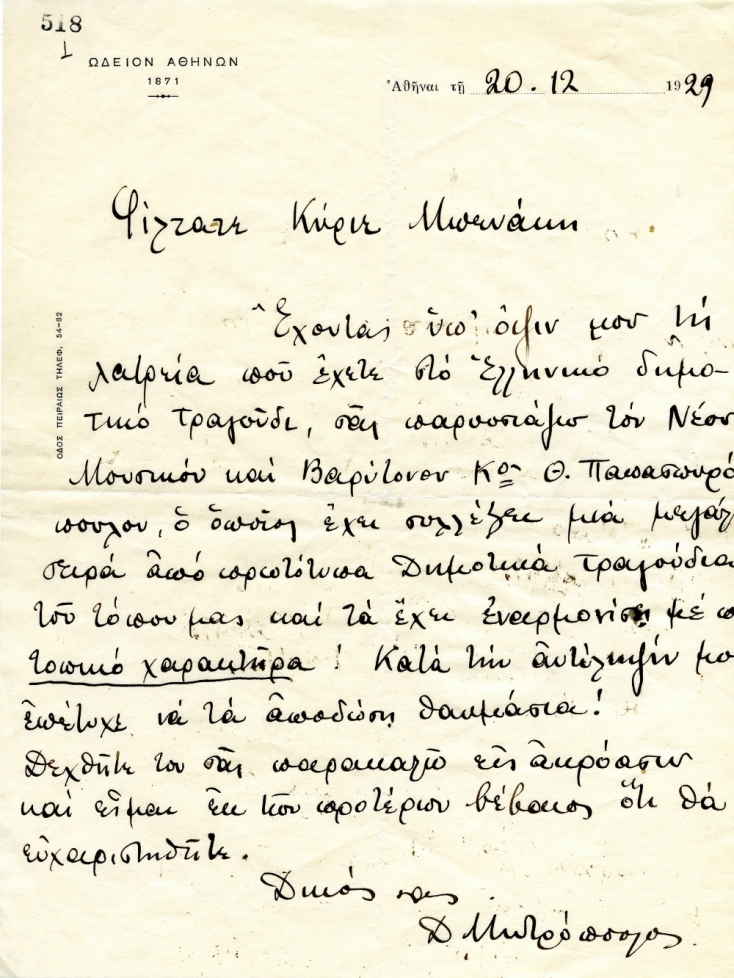 518
ΩΔΕΙΟΝ ΑΘΗΝΩΝ
1871
Ἀθῆναι τῇ 20.12 1929
ΟΔΟΣ ΠΕΙΡΑΙΩΣ ΤΗΛΕΦ. 54-82
Φίλτατε Κύριε Μπενάκη
Ἔχοντας ὑπ' ὄψιν μου τή
λατρεία ποῦ ἔχετε στό Ἑλληνικό δημο-
τικό τραγοῦδι, σᾶς παρουσιάζω τόν Νέον
Μουσικόν καί Βαρύτονον Κον Θ. Παπασπυρό
πουλον, ὁ ὁποῖος ἔχει συλλέξει μιά μεγάλ
σειρά ἀπό πρωτότυπα Δημοτικά τραγούδια
τοῦ τόπου μας καί τά ἔχει ἐναρμονίσει μέ
τοπικό χαρακτῆρα! Κατά τήν ἀντίληψίν μο
ἐπέτυχε νά τά ἀποδώσῃ θαυμάσια!
Δεχθῆτε τον σᾶς παρακαλῶ εἰς ἀκρόασιν
καί εἶμαι ἐκ τῶν προτέρων βέβαιος ὅτι θά
εὐχαριστηθῆτε.
Δικός σας
Δ Μητρόπουλος